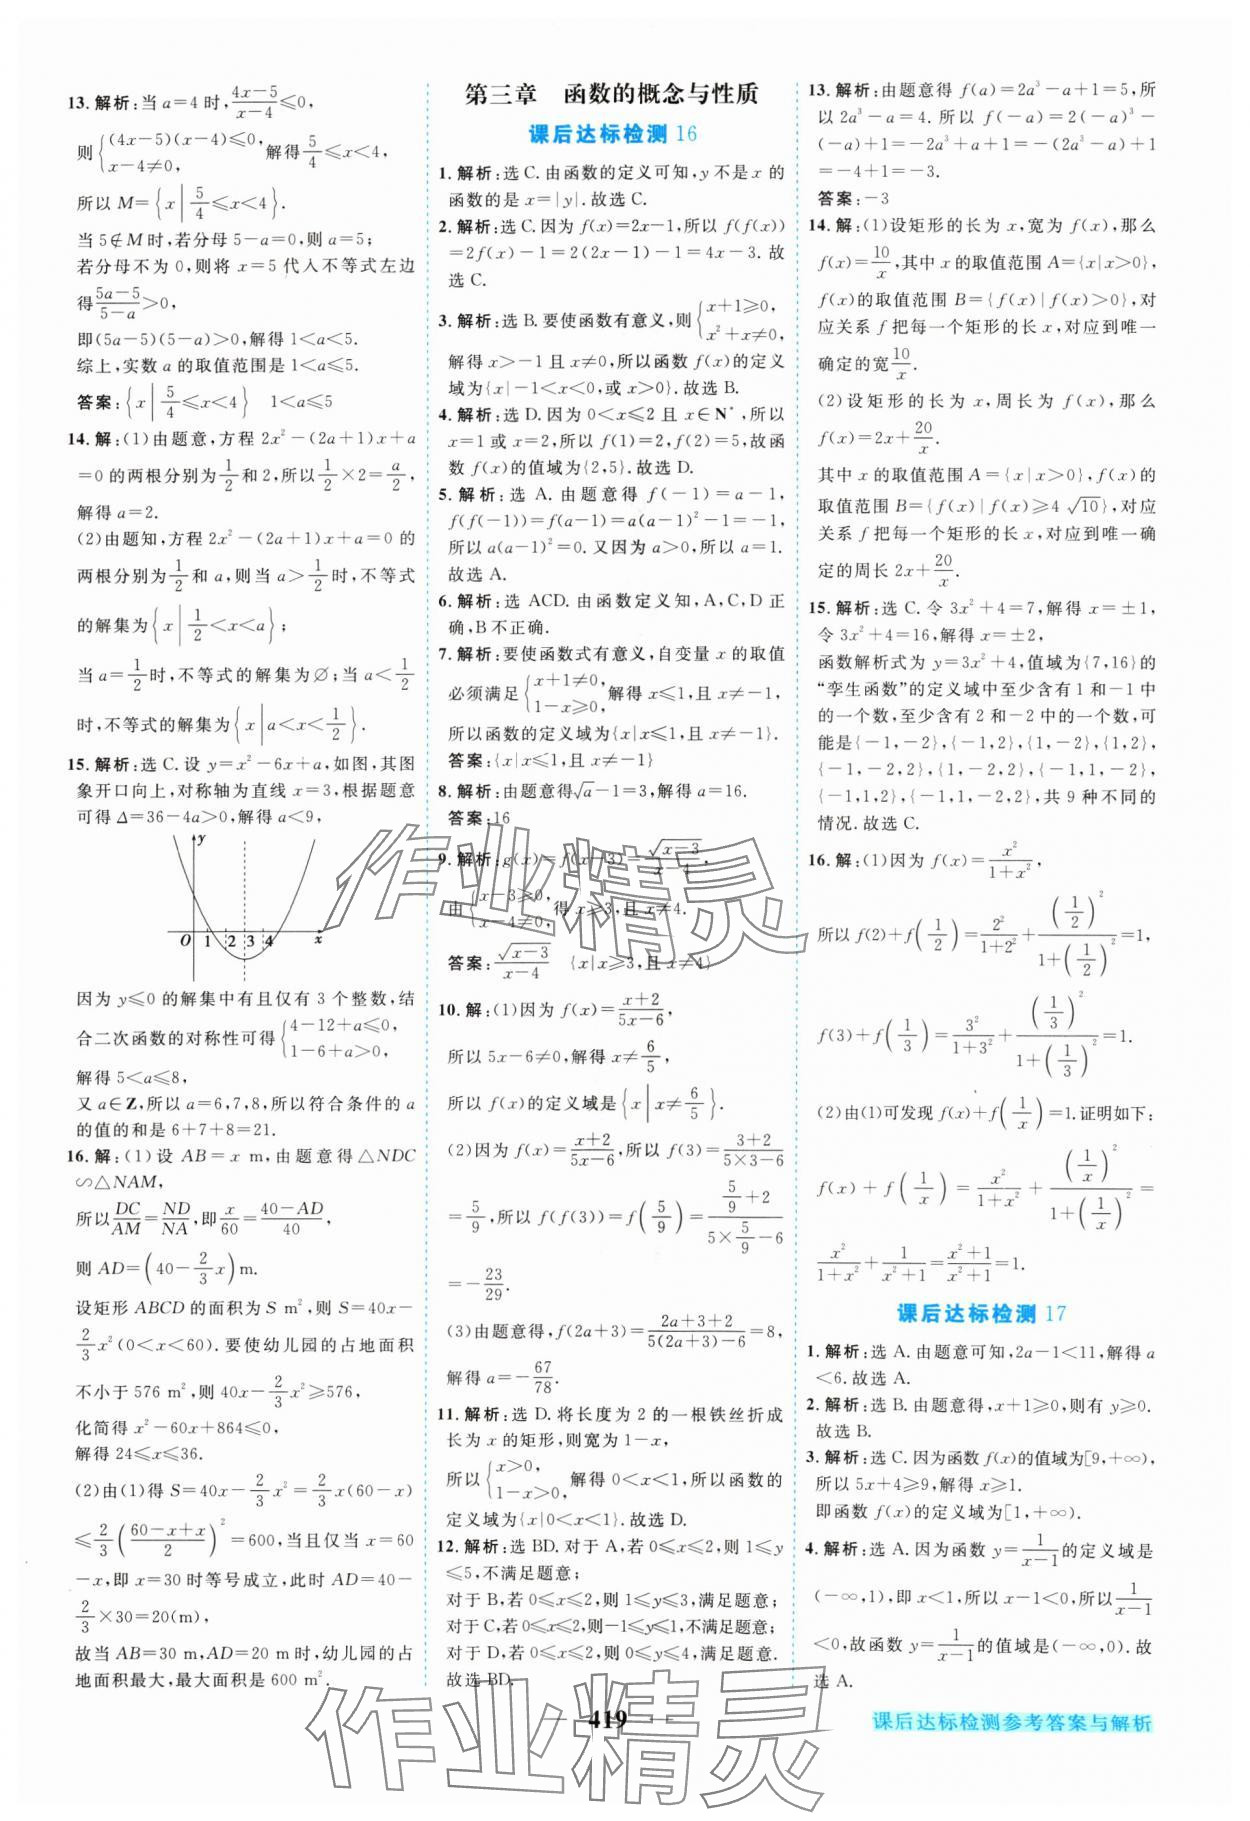 13. 解析:当 a=4 时, (4x-5)/(x-4) ≤0,
则 {(4x-5)(x-4)≤0, x-4≠0, 解得 5/4≤x<4,
所以 M={x | 5/4≤x<4}.
当 5∉M 时,若分母 5-a=0,则 a=5;
若分母不为 0,则将 x=5 代入不等式左边
得 (5a-5)/(5-a) >0,
即(5a-5)(5-a)>0,解得 1<a<5.
综上,实数 a 的取值范围是 1<a≤5.
答案:{x | 5/4≤x<4} 1<a≤5
14. 解:(1)由题意,方程 2x²-(2a+1)x+a
=0 的两根分别为 1/2 和 2,所以 1/2×2=a/2,
解得 a=2.
(2)由题知,方程 2x²-(2a+1)x+a=0 的
两根分别为 1/2 和 a,则当 a>1/2 时,不等式
的解集为{x | 1/2<x<a};
当 a=1/2 时,不等式的解集为∅;当 a<1/2
时,不等式的解集为{x | a<x<1/2}.
15. 解析:选 C. 设 y=x²-6x+a,如图,其图
象开口向上,对称轴为直线 x=3,根据题意
可得 Δ=36-4a>0,解得 a<9,
y
O 1 2 3 4 x
因为 y≤0 的解集中有且仅有 3 个整数,结
合二次函数的对称性可得{4-12+a≤0, 1-6+a>0,
解得 5<a≤8,
又 a∈Z,所以 a=6,7,8,所以符合条件的 a
的值的和是 6+7+8=21.
16. 解:(1)设 AB=x m,由题意得△NDC
∽△NAM,
所以 DC/AM=ND/NA,即 x/60=(40-AD)/40,
则 AD=(40-2/3 x)m.
设矩形 ABCD 的面积为 S m²,则 S=40x-
2/3 x²(0<x<60). 要使幼儿园的占地面积
不小于 576 m²,则 40x-2/3 x²≥576,
化简得 x²-60x+864≤0,
解得 24≤x≤36.
(2)由(1)得 S=40x-2/3 x²=2/3 x(60-x)
≤2/3((60-x+x)/2)²=600,当且仅当 x=60
-x,即 x=30 时等号成立,此时 AD=40-
2/3×30=20(m),
故当 AB=30 m,AD=20 m 时,幼儿园的占
地面积最大,最大面积是 600 m².
第三章 函数的概念与性质
课后达标检测 16
1. 解析:选 C. 由函数的定义可知,y 不是 x 的
函数的是 x=|y|. 故选 C.
2. 解析:选 C. 因为 f(x)=2x-1,所以 f(f(x))
=2f(x)-1=2(2x-1)-1=4x-3. 故
选 C.
3. 解析:选 B. 要使函数有意义,则{x+1≥0, x²+x≠0,
解得 x>-1 且 x≠0,所以函数 f(x)的定义
域为{x|-1<x<0,或 x>0}. 故选 B.
4. 解析:选 D. 因为 0<x≤2 且 x∈N*,所以
x=1 或 x=2,所以 f(1)=2,f(2)=5,故函
数 f(x)的值域为{2,5}. 故选 D.
5. 解析:选 A. 由题意得 f(-1)=a-1,
f(f(-1))=f(a-1)=a(a-1)²-1=-1,
所以 a(a-1)²=0. 又因为 a>0,所以 a=1.
故选 A.
6. 解析:选 ACD. 由函数定义知,A,C,D 正
确,B 不正确.
7. 解析:要使函数式有意义,自变量 x 的取值
必须满足{x+1≠0, 1-x≥0, 解得 x≤1,且 x≠-1,
所以函数的定义域为{x|x≤1,且 x≠-1}.
答案:{x|x≤1,且 x≠-1}
8. 解析:由题意得√a-1=3,解得 a=16.
答案:16
9. 解析:g(x)=f(x-3)=√(x-3)/(x-4),
由{x-3≥0, x-4≠0, 得 x≥3,且 x≠4.
答案:√(x-3)/(x-4) {x|x≥3,且 x≠4}
10. 解:(1)因为 f(x)=(x+2)/(5x-6),
所以 5x-6≠0,解得 x≠6/5,
所以 f(x)的定义域是{x | x≠6/5}.
(2)因为 f(x)=(x+2)/(5x-6),所以 f(3)=(3+2)/(5×3-6)
=5/9,所以 f(f(3))=f(5/9)=(5/9+2)/(5×5/9-6)
=-23/29.
(3)由题意得,f(2a+3)=(2a+3+2)/(5(2a+3)-6)=8,
解得 a=-67/78.
11. 解析:选 D. 将长度为 2 的一根铁丝折成
长为 x 的矩形,则宽为 1-x,
所以{x>0, 1-x>0, 解得 0<x<1,所以函数的
定义域为{x|0<x<1}. 故选 D.
12. 解析:选 BD. 对于 A,若 0≤x≤2,则 1≤y
≤5,不满足题意;
对于 B,若 0≤x≤2,则 1≤y≤3,满足题意;
对于 C,若 0≤x≤2,则-1≤y≤1,不满足题意;
对于 D,若 0≤x≤2,则 1≤y≤3,满足题意.
故选 BD.
13. 解析:由题意得 f(a)=2a³-a+1=5,所
以 2a³-a=4. 所以 f(-a)=2(-a)³-
(-a)+1=-2a³+a+1=-(2a³-a)+1
=-4+1=-3.
答案:-3
14. 解:(1)设矩形的长为 x,宽为 f(x),那么
f(x)=10/x,其中 x 的取值范围 A={x|x>0},
f(x)的取值范围 B={f(x)|f(x)>0},对
应关系 f 把每一个矩形的长 x,对应到唯一
确定的宽 10/x.
(2)设矩形的长为 x,周长为 f(x),那么
f(x)=2x+20/x.
其中 x 的取值范围 A={x|x>0},f(x)的
取值范围 B={f(x)|f(x)≥4√10},对应
关系 f 把每一个矩形的长 x,对应到唯一确
定的周长 2x+20/x.
15. 解析:选 C. 令 3x²+4=7,解得 x=±1,
令 3x²+4=16,解得 x=±2,
函数解析式为 y=3x²+4,值域为{7,16}的
“孪生函数”的定义域中至少含有 1 和-1 中
的一个数,至少含有 2 和-2 中的一个数,可
能是{-1,-2},{-1,2},{1,-2},{1,2},
{-1,-2,2},{1,-2,2},{-1,1,-2},
{-1,1,2},{-1,1,-2,2},共 9 种不同的
情况. 故选 C.
16. 解:(1)因为 f(x)=x²/(1+x²),
所以 f(2)+f(1/2)=2²/(1+2²)+(1/2)²/(1+(1/2)²)=1,
f(3)+f(1/3)=3²/(1+3²)+(1/3)²/(1+(1/3)²)=1.
(2)由(1)可发现 f(x)+f(1/x)=1. 证明如下:
f(x)+f(1/x)=x²/(1+x²)+(1/x)²/(1+(1/x)²)=
x²/(1+x²)+1/(x²+1)=(x²+1)/(x²+1)=1.
课后达标检测 17
1. 解析:选 A. 由题意可知,2a-1<11,解得 a
<6. 故选 A.
2. 解析:选 B. 由题意得,x+1≥0,则有 y≥0.
故选 B.
3. 解析:选 C. 因为函数 f(x)的值域为[9,+∞),
所以 5x+4≥9,解得 x≥1.
即函数 f(x)的定义域为[1,+∞).
4. 解析:选 A. 因为函数 y=1/(x-1)的定义域是
(-∞,1),即 x<1,所以 x-1<0,所以 1/(x-1)
<0,故函数 y=1/(x-1)的值域是(-∞,0). 故
选 A.
419
课后达标检测参考答案与解析
作业精灵
作业精灵